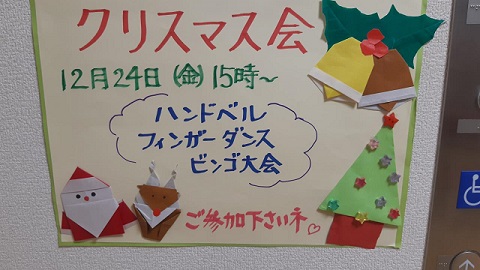 クリスマス会
12月24日㈮15時～
ハンドベル
フィンガーダンス
ビンゴ大会
ご参加下さいネ♡